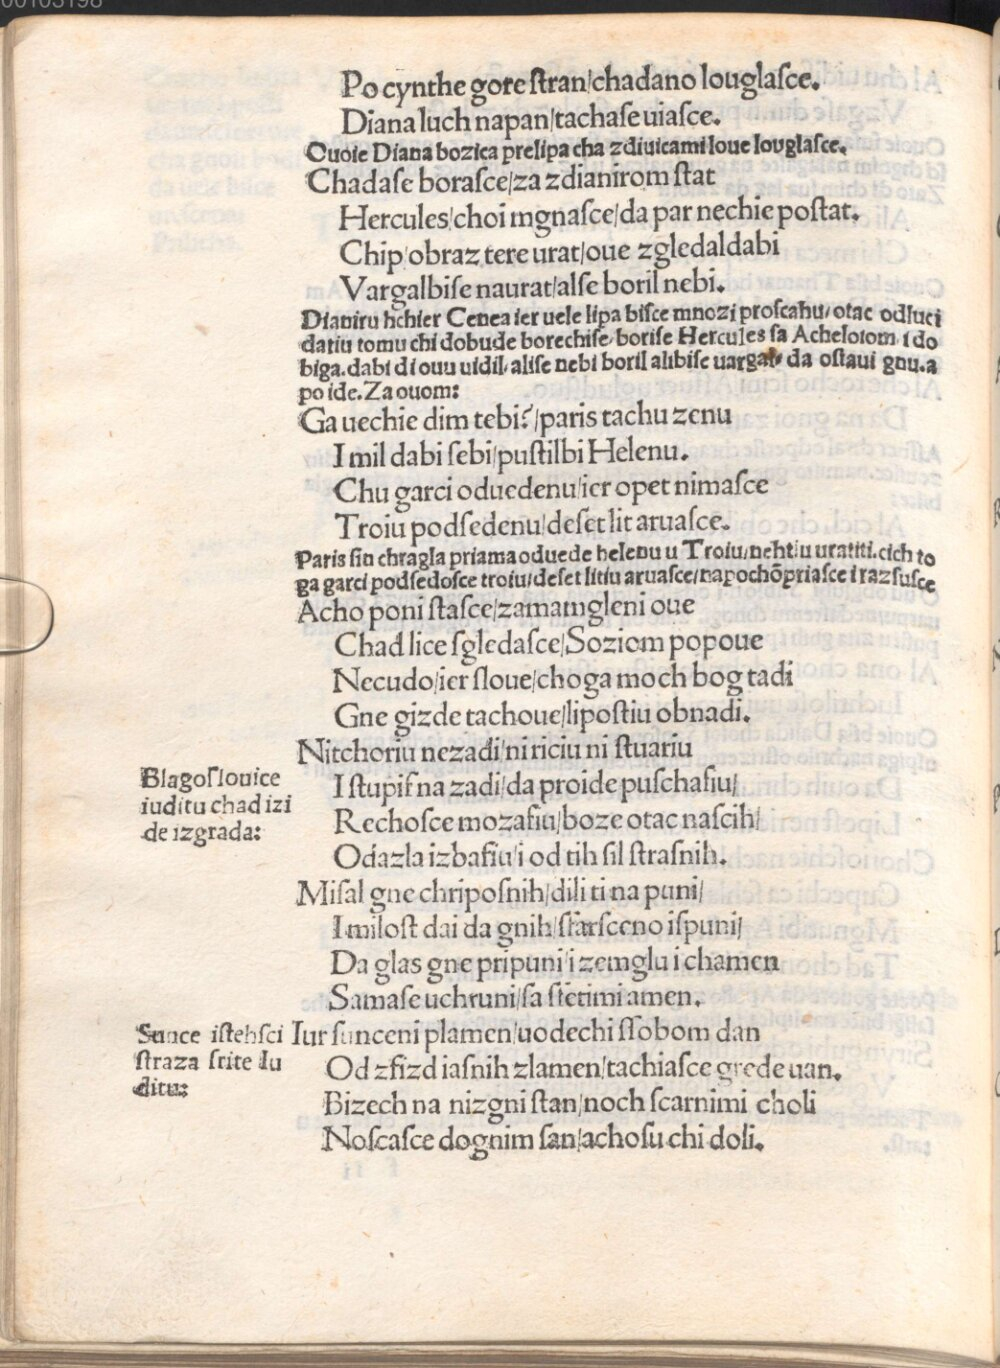 00103198
Po cynthe gore ſtran/chadano louglaſce.
Diana luch napan/tachaſe uiaſce.
Ouoie Diana bozica prelipa cha zdiuicami loue louglaſce.
Chadaſe boraſce/za zdianirom ſtat
Hercules/choi mgnaſce/da par nechie poſtat.
Chip/obraz tere urat/oue zgledaldabi
Vargalbiſe naurat/alſe boril nebi.
Dianiru hchier Cenea ier uele lipa biſce mnozi proſcahu/otac odluci
datiu tomu chi dobude borechiſe/boriſe Hercules ſa Acheloiom i do
biga.dabi di ouu uidil/aliſe nebi boril alibiſe uargal/ da oſtaui gnu.a
po ide.Za ouom:
Ga uechie dim tebi?/paris tachu zenu
I mil dabi ſebi/puſtilbi Helenu.
Chu garci oduedenu/ier opet nimaſce
Troiu podſedenu/deſet lit aruaſce.
Paris ſin chragla priama oduede helenu u Troiu/neht/u uratiti.cich to
ga garci podſedoſce troiu/deſet litiu aruaſce/napochō priaſce i razſuſce
Acho poni ſtaſce/zamamgleni oue
Chad lice ſgledaſce/Soziom popoue
Necudo/ier ſloue/choga moch bog tadi
Gne gizde tachoue/lipoſtiu obnadi.
Nitchoriu nezadi/ni riciu ni ſtuariu
Blagoſlouice
iuditu chad izi
de izgrada:
I ſtupiſ na zadi/da proide puſchaſiu/
Rechoſce mozaſiu/boze otac naſcih/
Odazla izbaſiu/i od tih ſil ſtraſnih.
Miſal gne chripoſnih/dili ti na puni/
I miloſt dai da gnih/ſtarſceno iſpuni/
Da glas gne pripuni/i zemglu i chamen
Samaſe uchruni/ſa ſtetimi amen.
Sunce iſtehſci
ſtraza ſrite Iu
ditu:
Iur ſunceni plamen/uodechi ſſobom dan
Od zfizd iaſnih zlamen/tachiaſce grede uan.
Bizech na nizgni ſtan/noch ſcarnimi choli
Noſcaſce dognim ſan/achoſu chi doli.